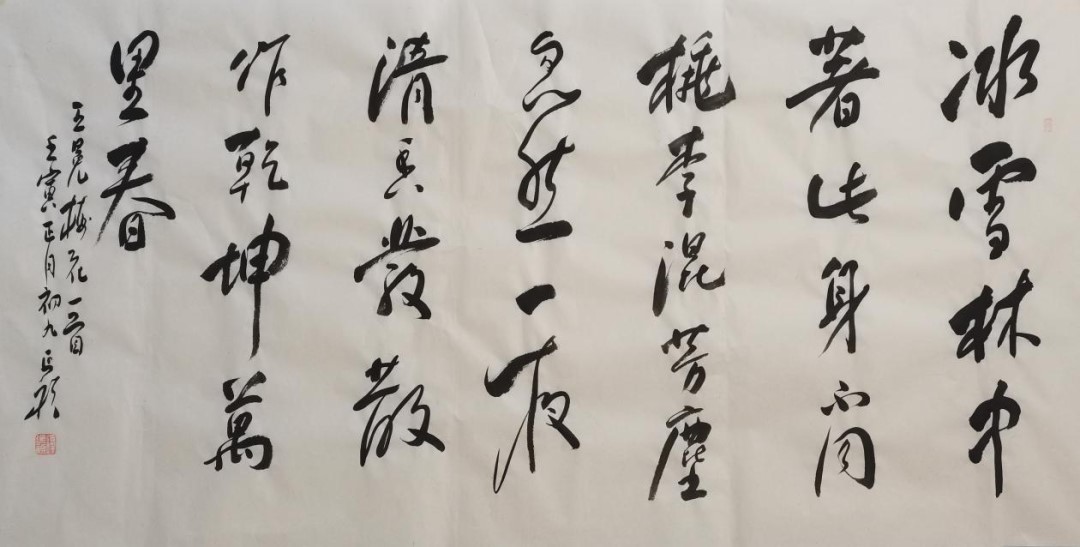 冰雪林中
著此身不同
桃李混芳塵
忽然一夜
清香發散
作乾坤萬
里春
王冕梅花一首
壬寅正月初九